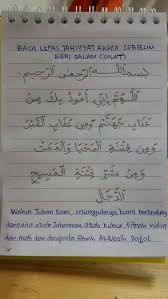 BACA LEPAS TAHIYYAT AKHIR SEBELUM
BERI SALAM (SOLAT)
بسم الله الرحمن الرحيم
اللهم إني أعوذ بك من
عذاب جهنم ومن عذاب القبر
ومن فتنة
ومن شر فتنة المسيح
الدجال
Wahai Tuhan Kami, sesungguhnya kami berlindung
daripada azab Jahannam, azab kubur, fitnah hidup
dan mati dan daripada fitnah Al-Masih Dajjal